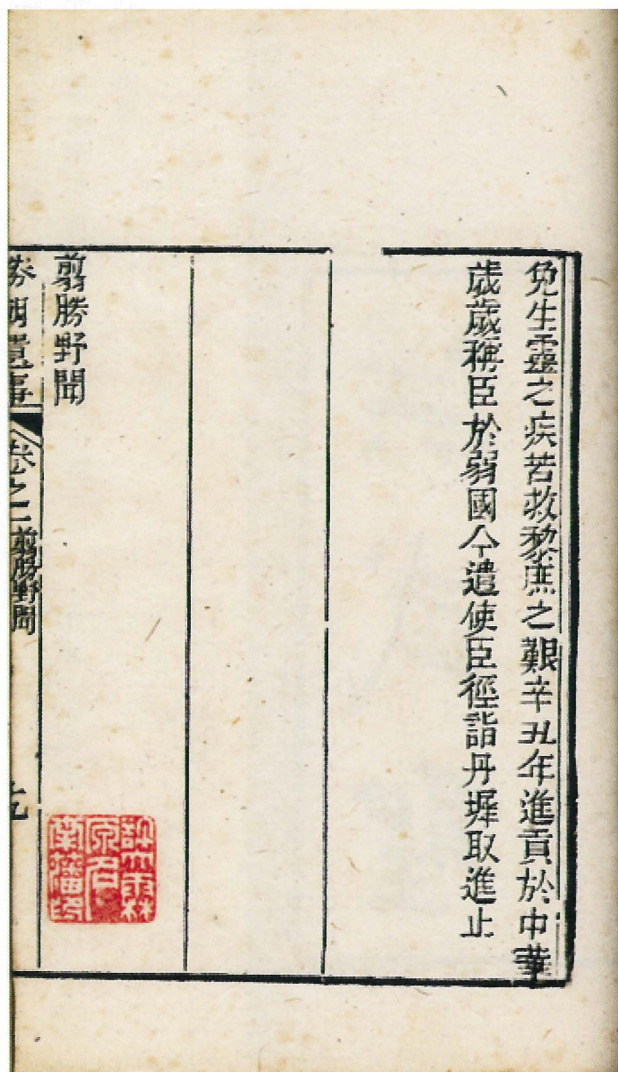 免生靈之疾苦救黎庶之艱辛丑年進貢於中華
歲歲稱臣於弱國今遣使臣徑詣丹墀取進止
翦勝野聞
勝朝遺事
卷之一
翦勝野聞
九